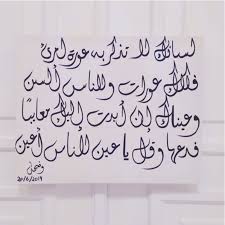 لسانك لا تذكر به عورة امرئ
فكلك عورات وللناس ألسن
وعيناك إن أبدت إليك معايبًا
فدعها وقل يا عين للناس أعين
20/6/2019